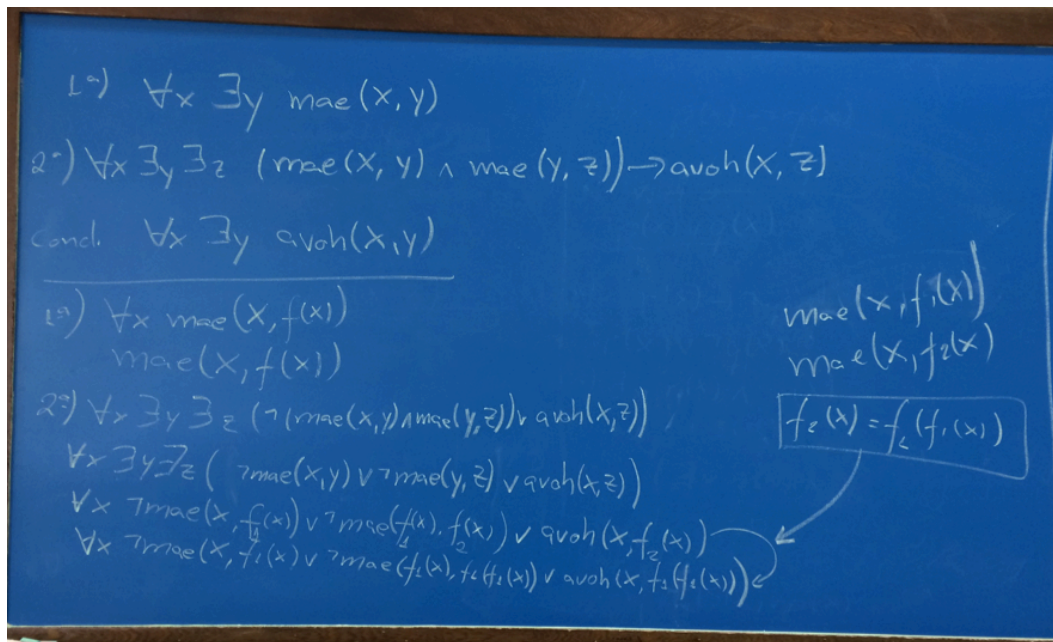 1ª) ∀x ∃y mae(x,y)
2ª) ∀x ∃y ∃z (mae(x,y) ∧ mae(y,z)) → avoh(x,z)
Concl. ∀x ∃y avoh(x,y)
1ª) ∀x mae(x,f(x))
mae(x,f(x))
2ª) ∀x ∃y ∃z (¬(mae(x,y) ∧ mae(y,z)) ∨ avoh(x,z))
∀x ∃y ∃z (¬mae(x,y) ∨ ¬mae(y,z) ∨ avoh(x,z))
∀x ¬mae(x,f₁(x)) ∨ ¬mae(f₁(x),f₂(x)) ∨ avoh(x,f₂(x))
∀x ¬mae(x,f₁(x) ∨ ¬mae(f₁(x),f₂(f₁(x)) ∨ avoh(x,f₂(f₁(x)))
mae(x,f₁(x))
mae(x,f₂(x)
f₂(x) = f₂(f₁(x))